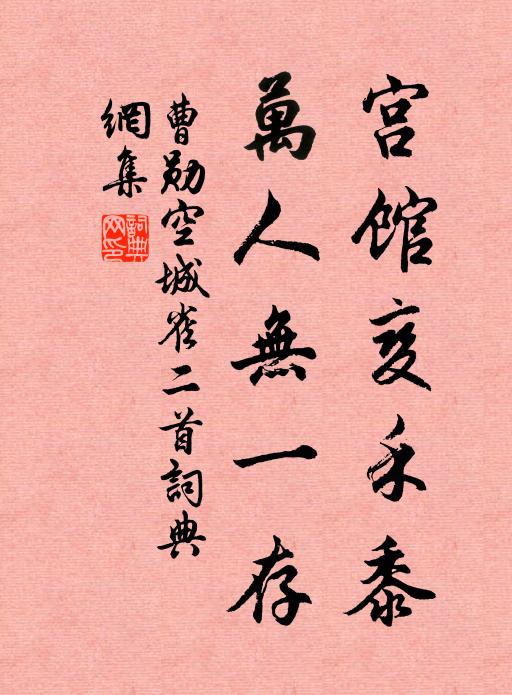 宫館变禾黍
萬人無一存
曹勛空城雀二首詞典
網集
詞典网印